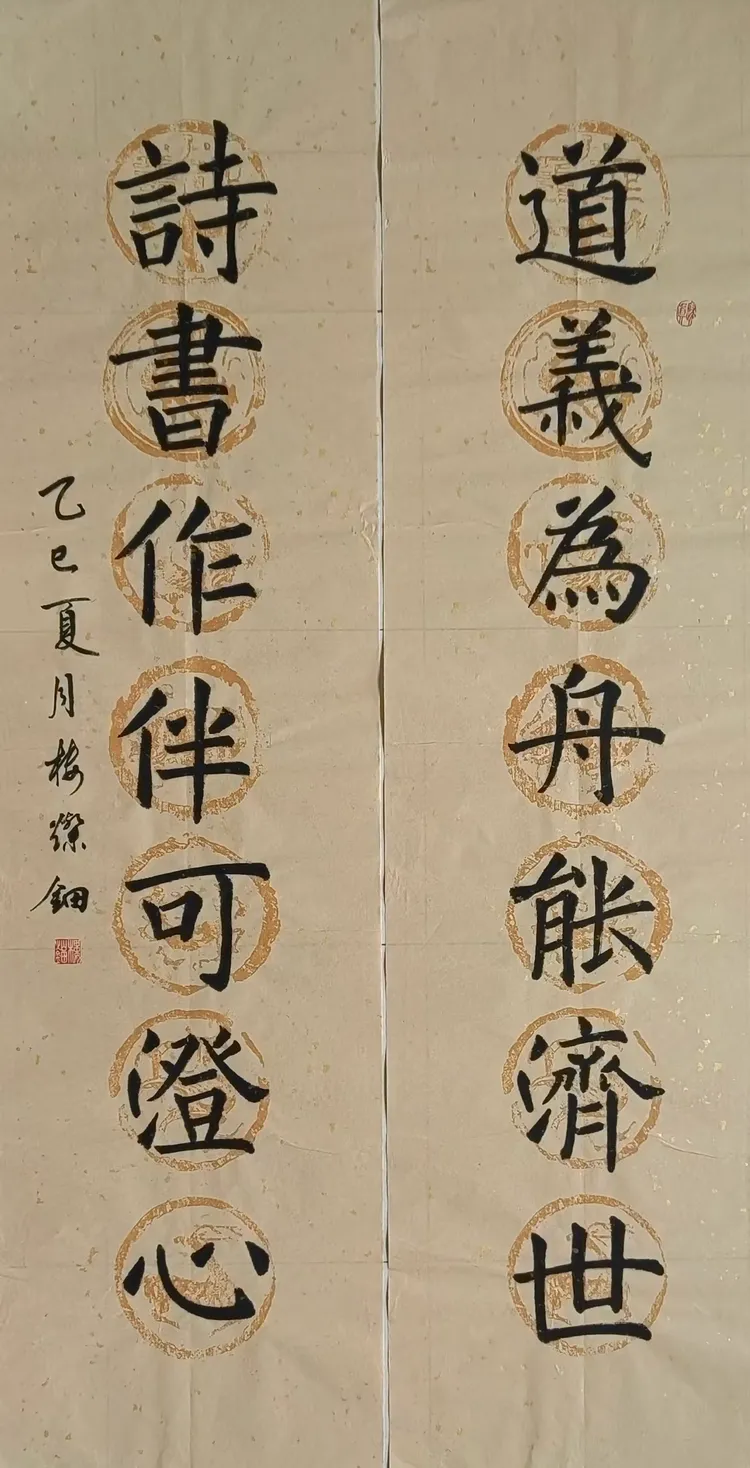 道義為舟能濟世
詩書作伴可澄心
乙巳夏月梅燦鈿